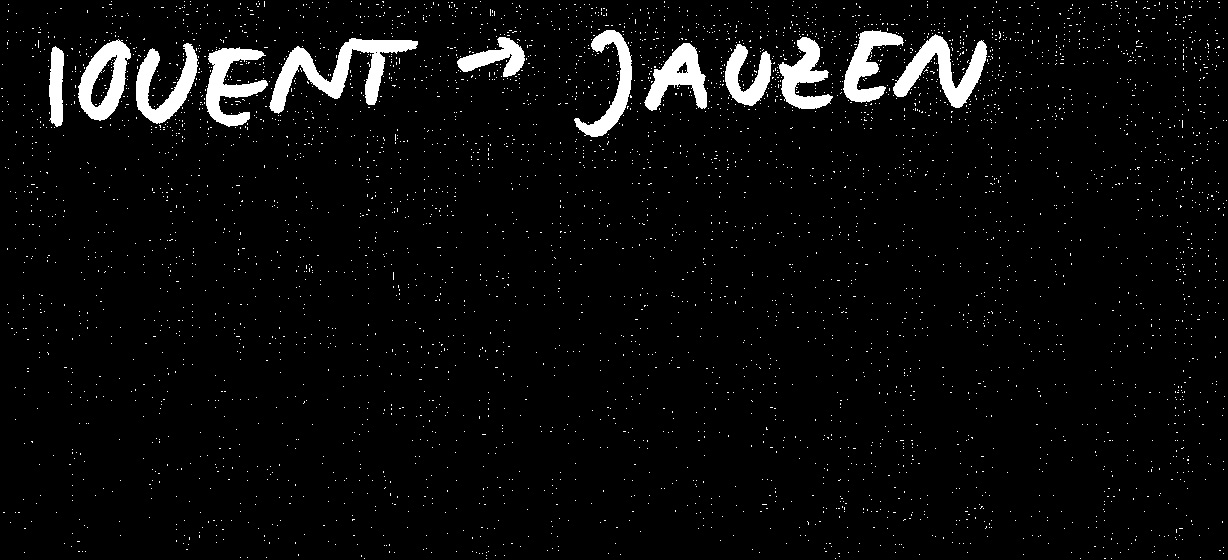 IOUENT → JAUZEN